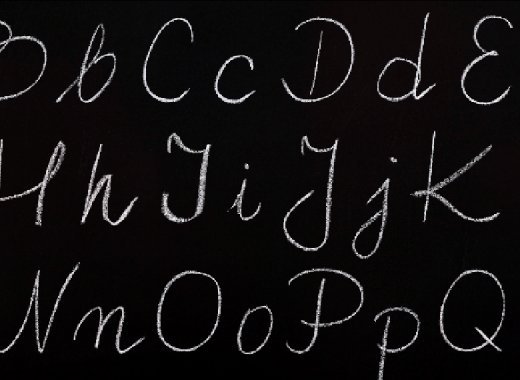 B b C c D d E
H h I i J j K
N n O o P p Q